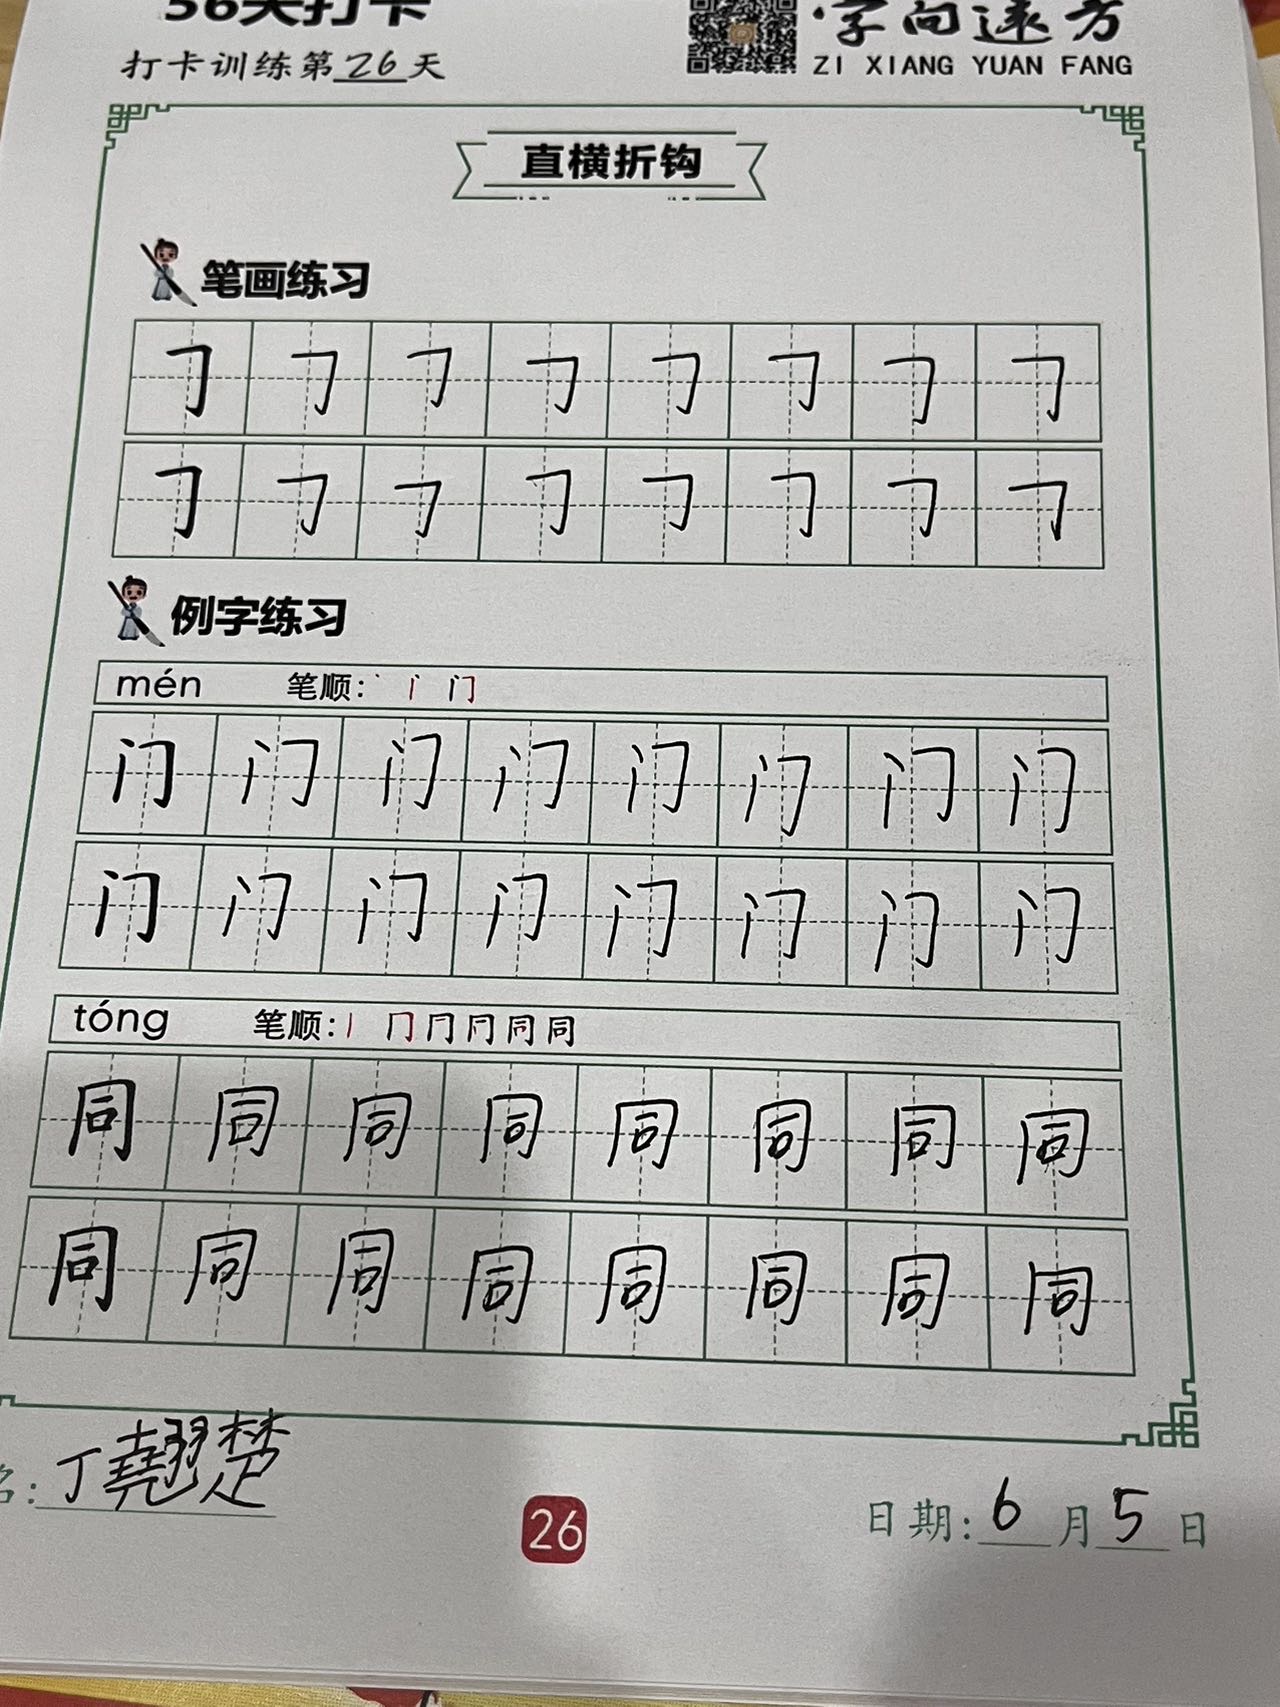 56天打卡
字向远方
打卡训练第26天
ZI XIANG YUAN FANG
直横折钩
笔画练习
𠃌 𠃌 𠃌 𠃌 𠃌 𠃌 𠃌 𠃌
𠃌 𠃌 𠃌 𠃌 𠃌 𠃌 𠃌 𠃌
例字练习
mén 笔顺: 丶 丨 门
门 门 门 门 门 门 门 门
门 门 门 门 门 门 门 门
tóng 笔顺: 丨 冂 同
同 同 同 同 同 同 同 同
同 同 同 同 同 同 同 同
名: 丁翹楚
26
日期: 6月5日